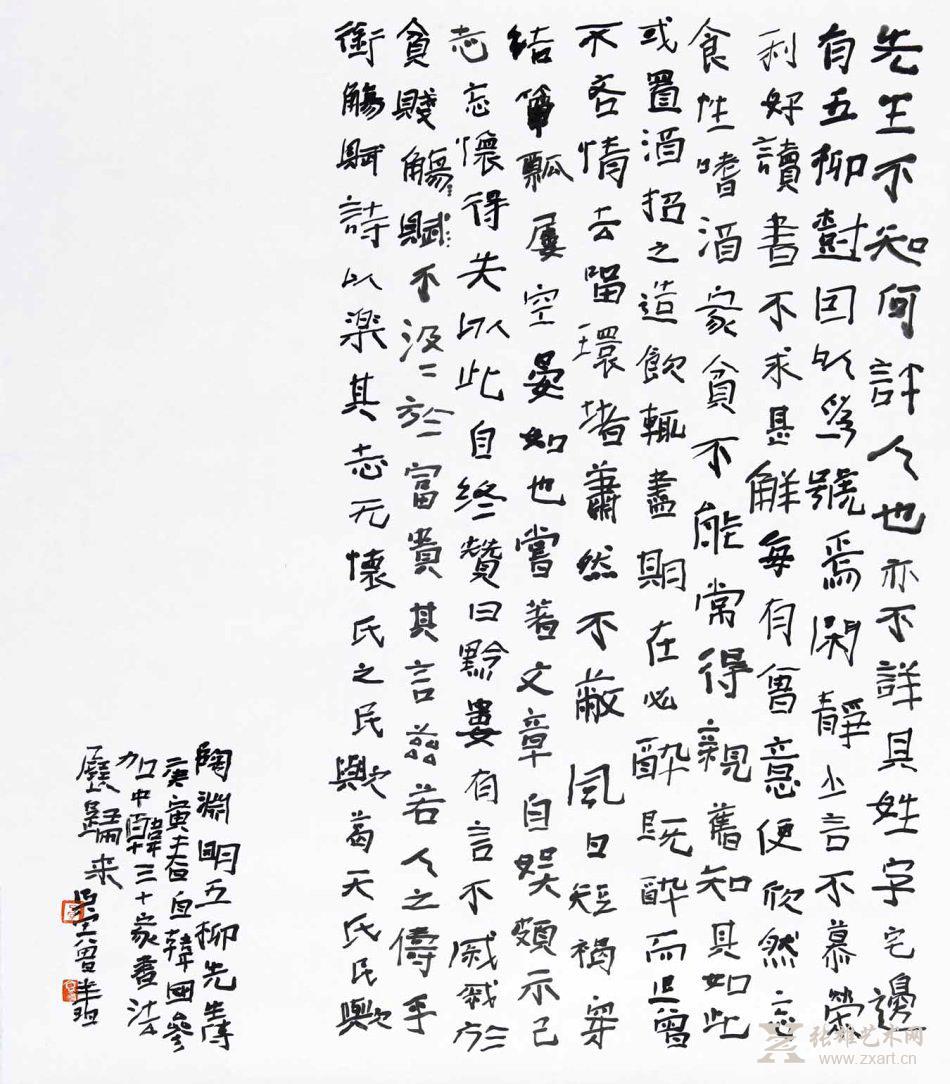 先生不知何許人也亦不詳其姓字宅邊
有五柳樹因以為號焉閑靜少言不慕榮
利好讀書不求甚解每有會意便欣然忘
食性嗜酒家貧不能常得親舊知其如此
或置酒招之造飲輒盡期在必醉既醉而退曾
不吝情去留環堵蕭然不蔽風日短褐穿
結簞瓢屢空晏如也嘗著文章自娛頗示己
志忘懷得失以此自終贊曰黔婁有言不戚戚於
貧賤觴賦不汲〻於富貴其言茲若人之儔乎
銜觴賦詩以楽其志无懷氏之民歟葛天氏民歟
陶淵明五柳先生傳
庚寅春自韓國參
加中韓三十家書法
展歸来
张雄艺术网
www.zxart.cn